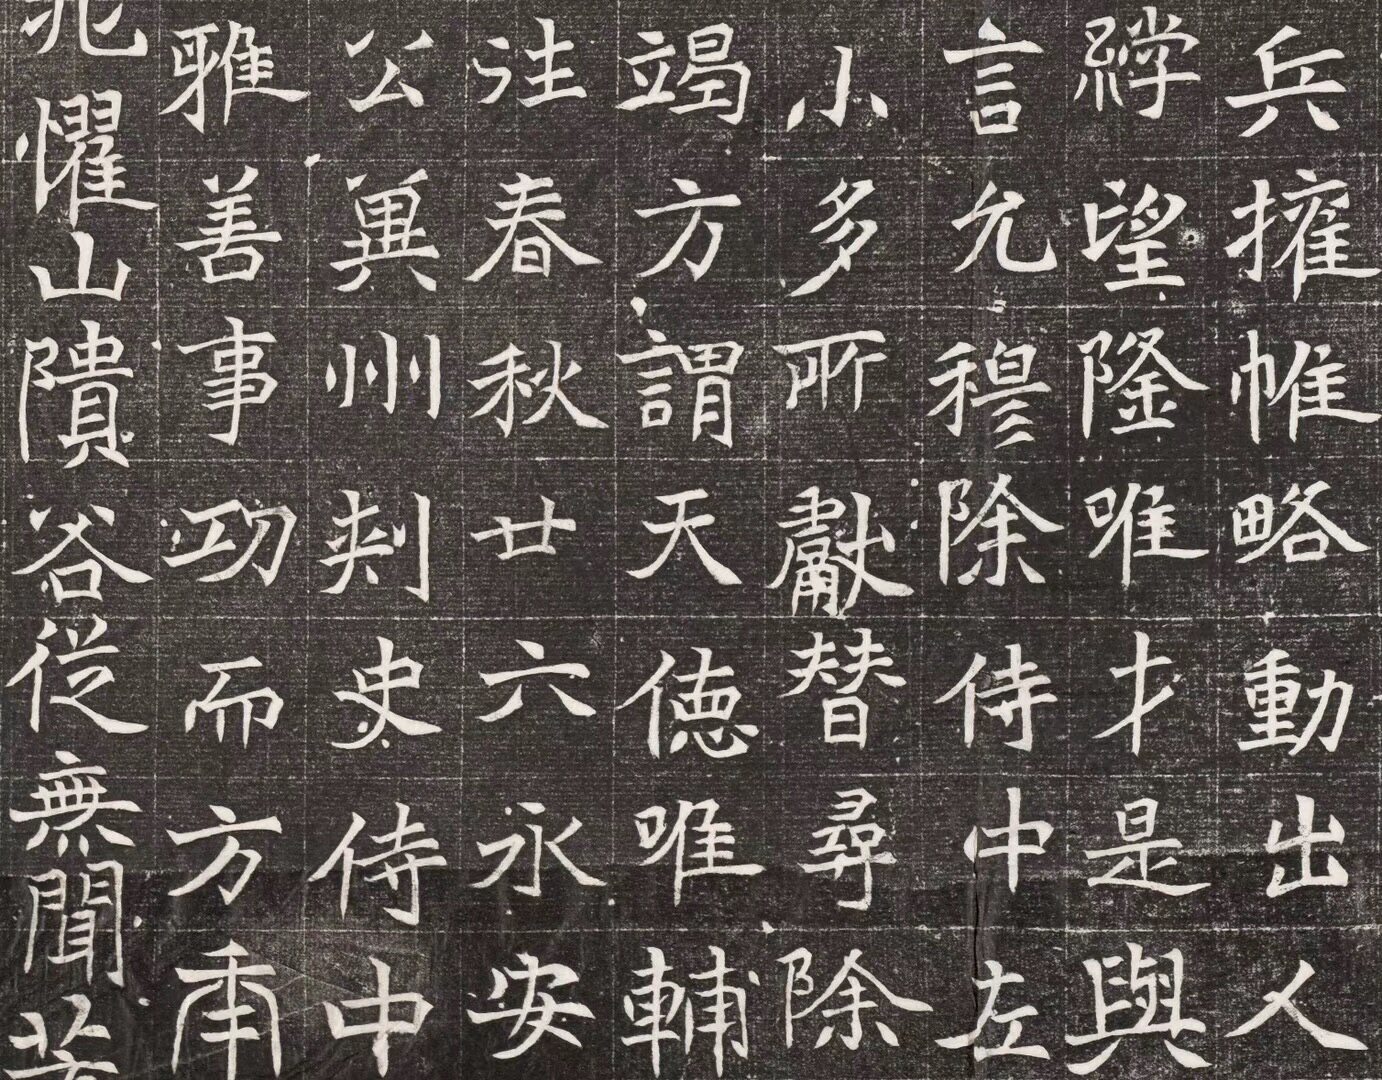 兵擁帷略動出人
望隆唯才是與
言允穆除侍中左
小多所獻替尋除
竭方謂天德唯輔
注春秋廿六永安
公兾州刾史侍中
雅善事功而方
懼山隤谷從無聞